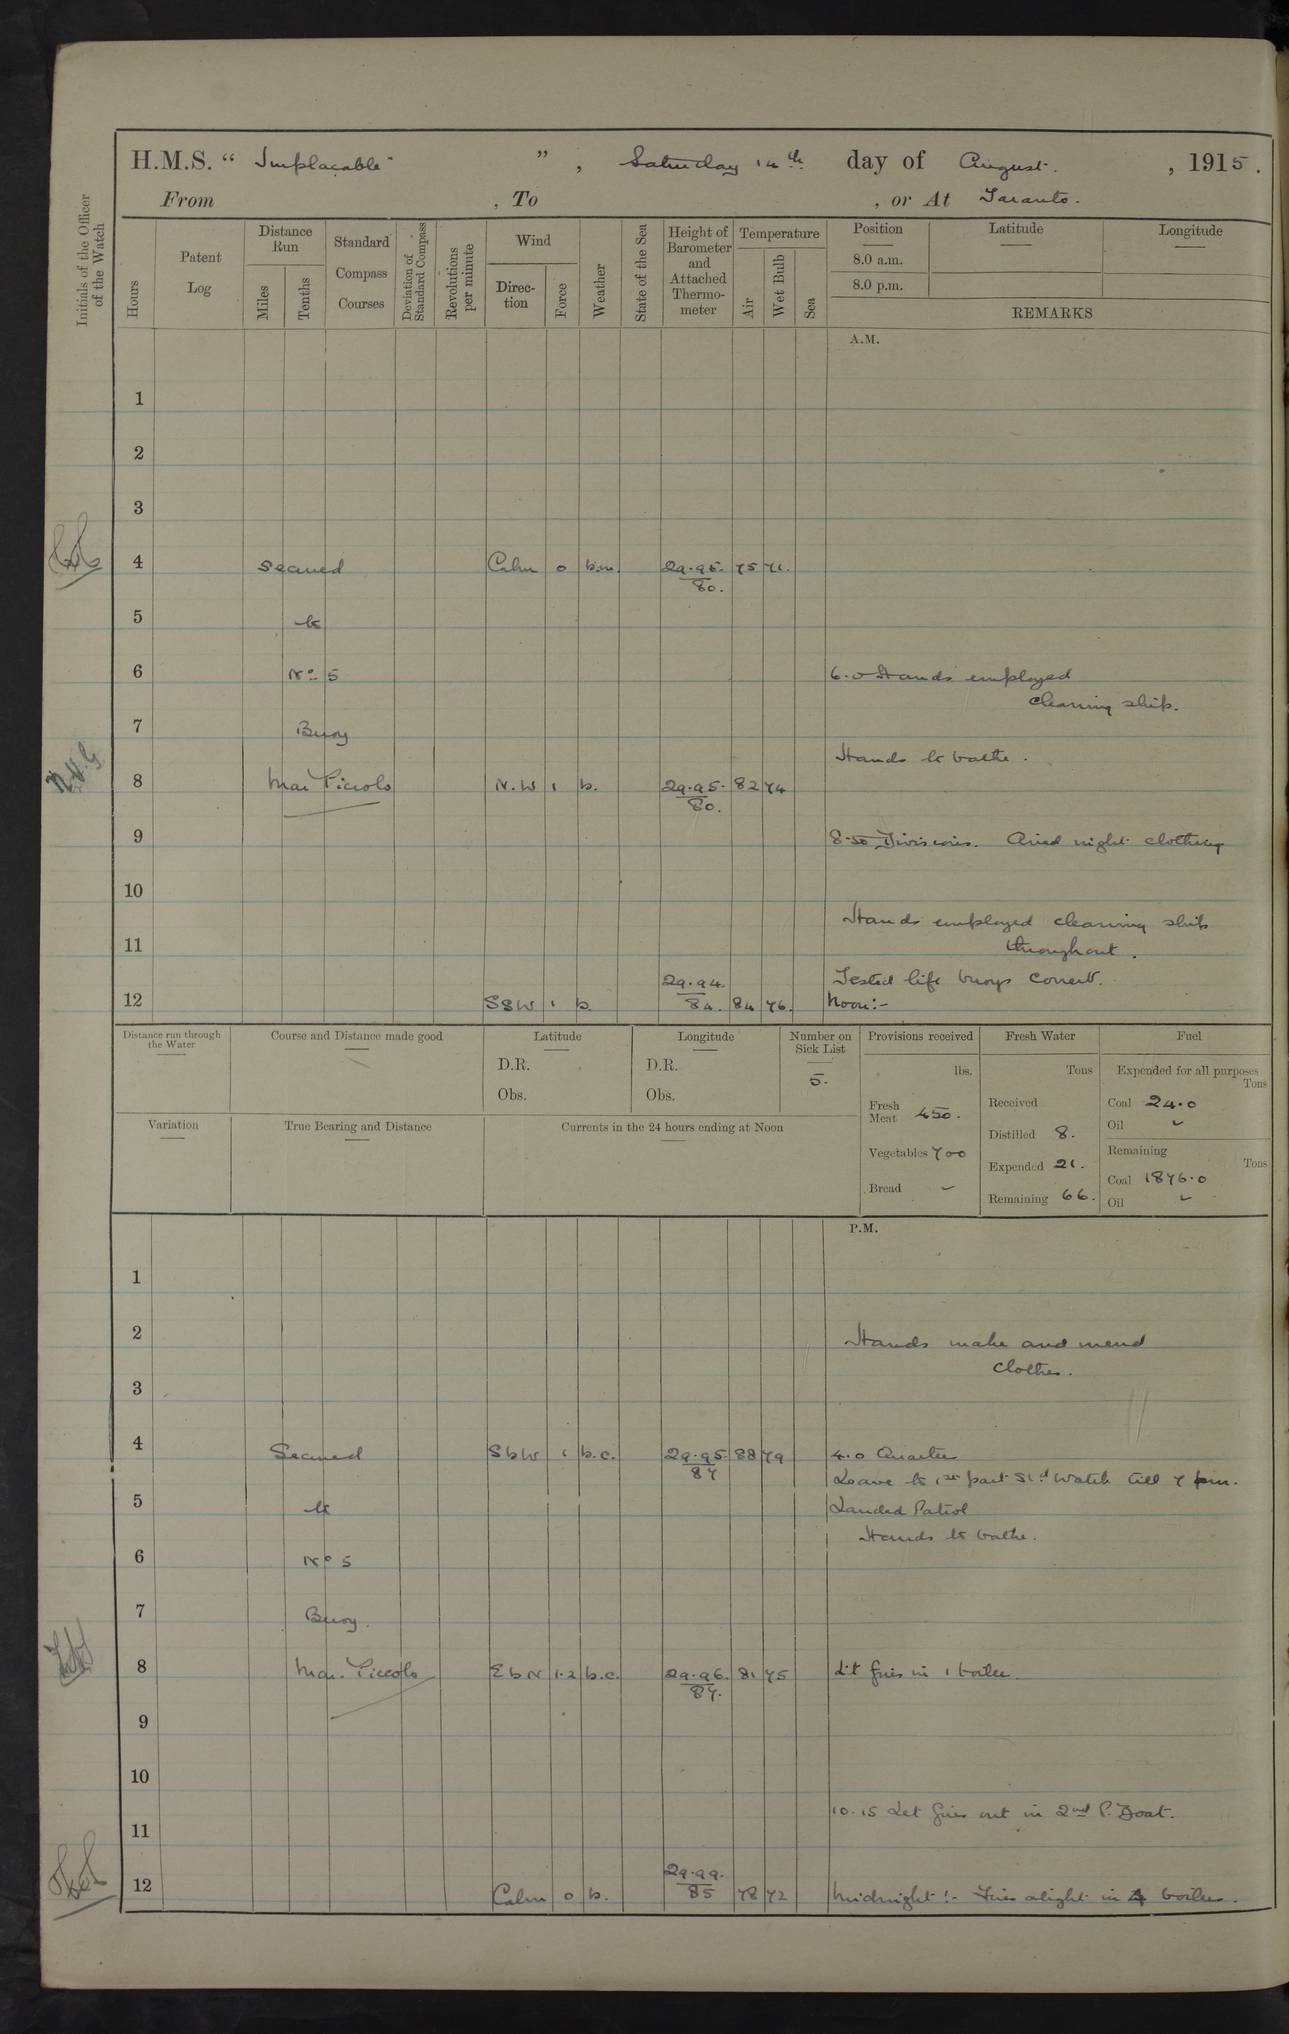 H.M.S. “ Implacable ” , Saturday 14th day of August. , 1915.
From , To , or At Taranto.
Initials of the Officer of the Watch
Hours
Patent Log
Distance Run
Miles
Tenths
Standard Compass Courses
Deviation of Standard Compass
Revolutions per minute
Wind
Direction
Force
Weather
State of the Sea
Height of Barometer and Attached Thermometer
Temperature
Air
Wet Bulb
Sea
Position
Latitude
Longitude
8.0 a.m.
8.0 p.m.
REMARKS
A.M.
1
2
3
4 Secured Calm 0 b.m. 29.95. 80. 75 71.
5 to
6 No 5 6.0 Hands employed
cleaning ship.
7 Buoy
Hands to bathe.
8 Mar Piccolo N.W 1 b. 29.95. 80. 82 74
9 8.50 Divisions. Aired night clothing
10
Hands employed cleaning ship
11 throughout.
Tested life buoys correct.
12 SSW 1 b. 29.94. 84. 84 76. Noon:-
Distance run through the Water
Course and Distance made good
Latitude
D.R.
Obs.
Longitude
D.R.
Obs.
Number on Sick List
5.
Variation
True Bearing and Distance
Currents in the 24 hours ending at Noon
Provisions received
lbs.
Fresh Meat 450.
Vegetables 700
Bread –
Fresh Water
Tons
Received
Distilled 8.
Expended 21.
Remaining 66.
Fuel
Expended for all purposes
Tons
Coal 24.0
Oil –
Remaining
Tons
Coal 1876.0
Oil –
P.M.
1
2 Hands make and mend
clothes.
3
4 Secured SbW 1 b.c. 29.95. 87 88 79 4.0 Quarters
Leave to 1st part Std watch till 7 pm.
5 to Landed Patrol
Hands to bathe.
6 No 5
7 Buoy.
8 Mar. Piccolo EbN 1.2 b.c. 29.96. 87. 81 75 Lit fires in 1 boiler.
9
10
10.15 Let fires out in 2nd P. Boat.
11
12 Calm 0 b. 29.99. 85 78 72 Midnight:- Fires alight in 4 boilers.